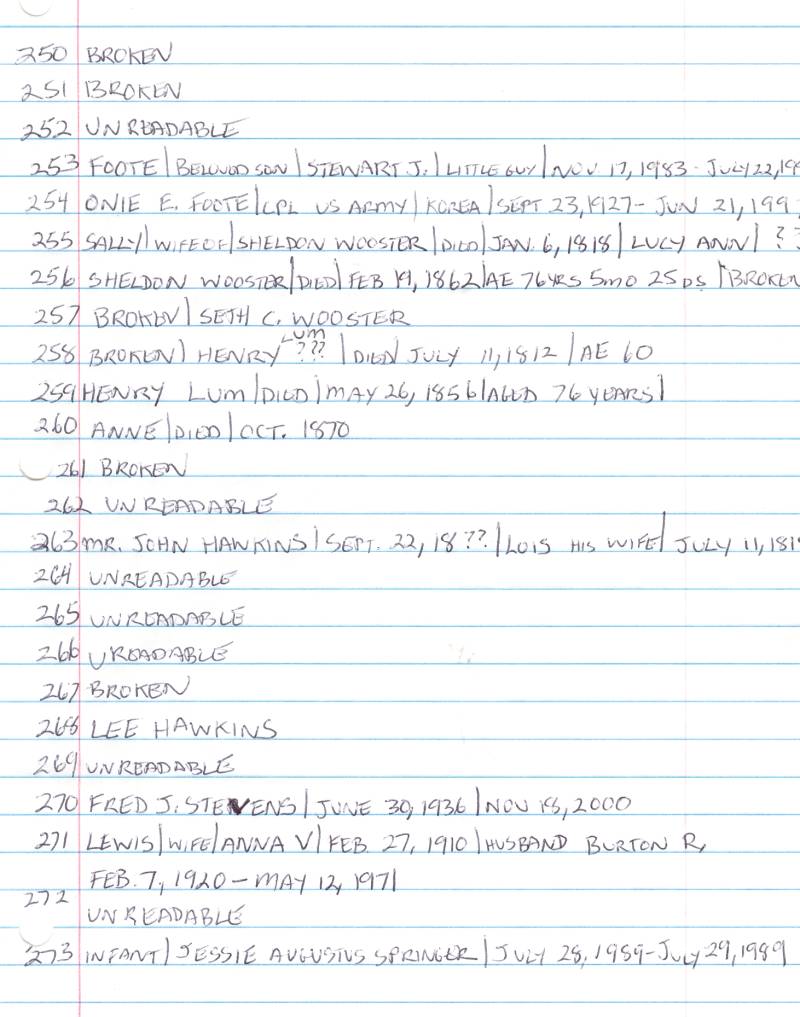 250 BROKEN
251 BROKEN
252 UNREADABLE
253 FOOTE | BELOVOD SON | STEWART J. | LITTLE GUY | NOV 17, 1983 - JULY 22, 19
254 ONIE E. FOOTE | CPL US ARMY | KOREA | SEPT 23, 1927 - JUN 21, 199
255 SALLY | WIFE OF | SHELDON WOOSTER | DIED | JAN. 6, 1818 | LUCY ANN | ??
256 SHELDON WOOSTER | DIED | FEB 19, 1862 | AE 76 YRS 5 MO 25 DS | BROKEN
257 BROKEN | SETH C. WOOSTER
258 BROKEN | HENRY LUM ??? | DIED JULY 11, 1812 | AE 60
259 HENRY LUM | DIED | MAY 26, 1856 | AGED 76 YEARS |
260 ANNE | DIED | OCT. 1870
261 BROKEN
262 UNREADABLE
263 MR. JOHN HAWKINS | SEPT. 22, 18?? | LOIS HIS WIFE | JULY 11, 181
264 UNREADABLE
265 UNREADABLE
266 UREADABLE
267 BROKEN
268 LEE HAWKINS
269 UNREADABLE
270 FRED J. STEVENS | JUNE 30, 1936 | NOV 18, 2000
271 LEWIS | WIFE | ANNA V | FEB. 27, 1910 | HUSBAND BURTON R,
FEB. 7, 1920 - MAY 12, 1971
272 UNREADABLE
273 INFANT | JESSIE AUGUSTUS SPRINGER | JULY 28, 1989 - JULY 29, 1989